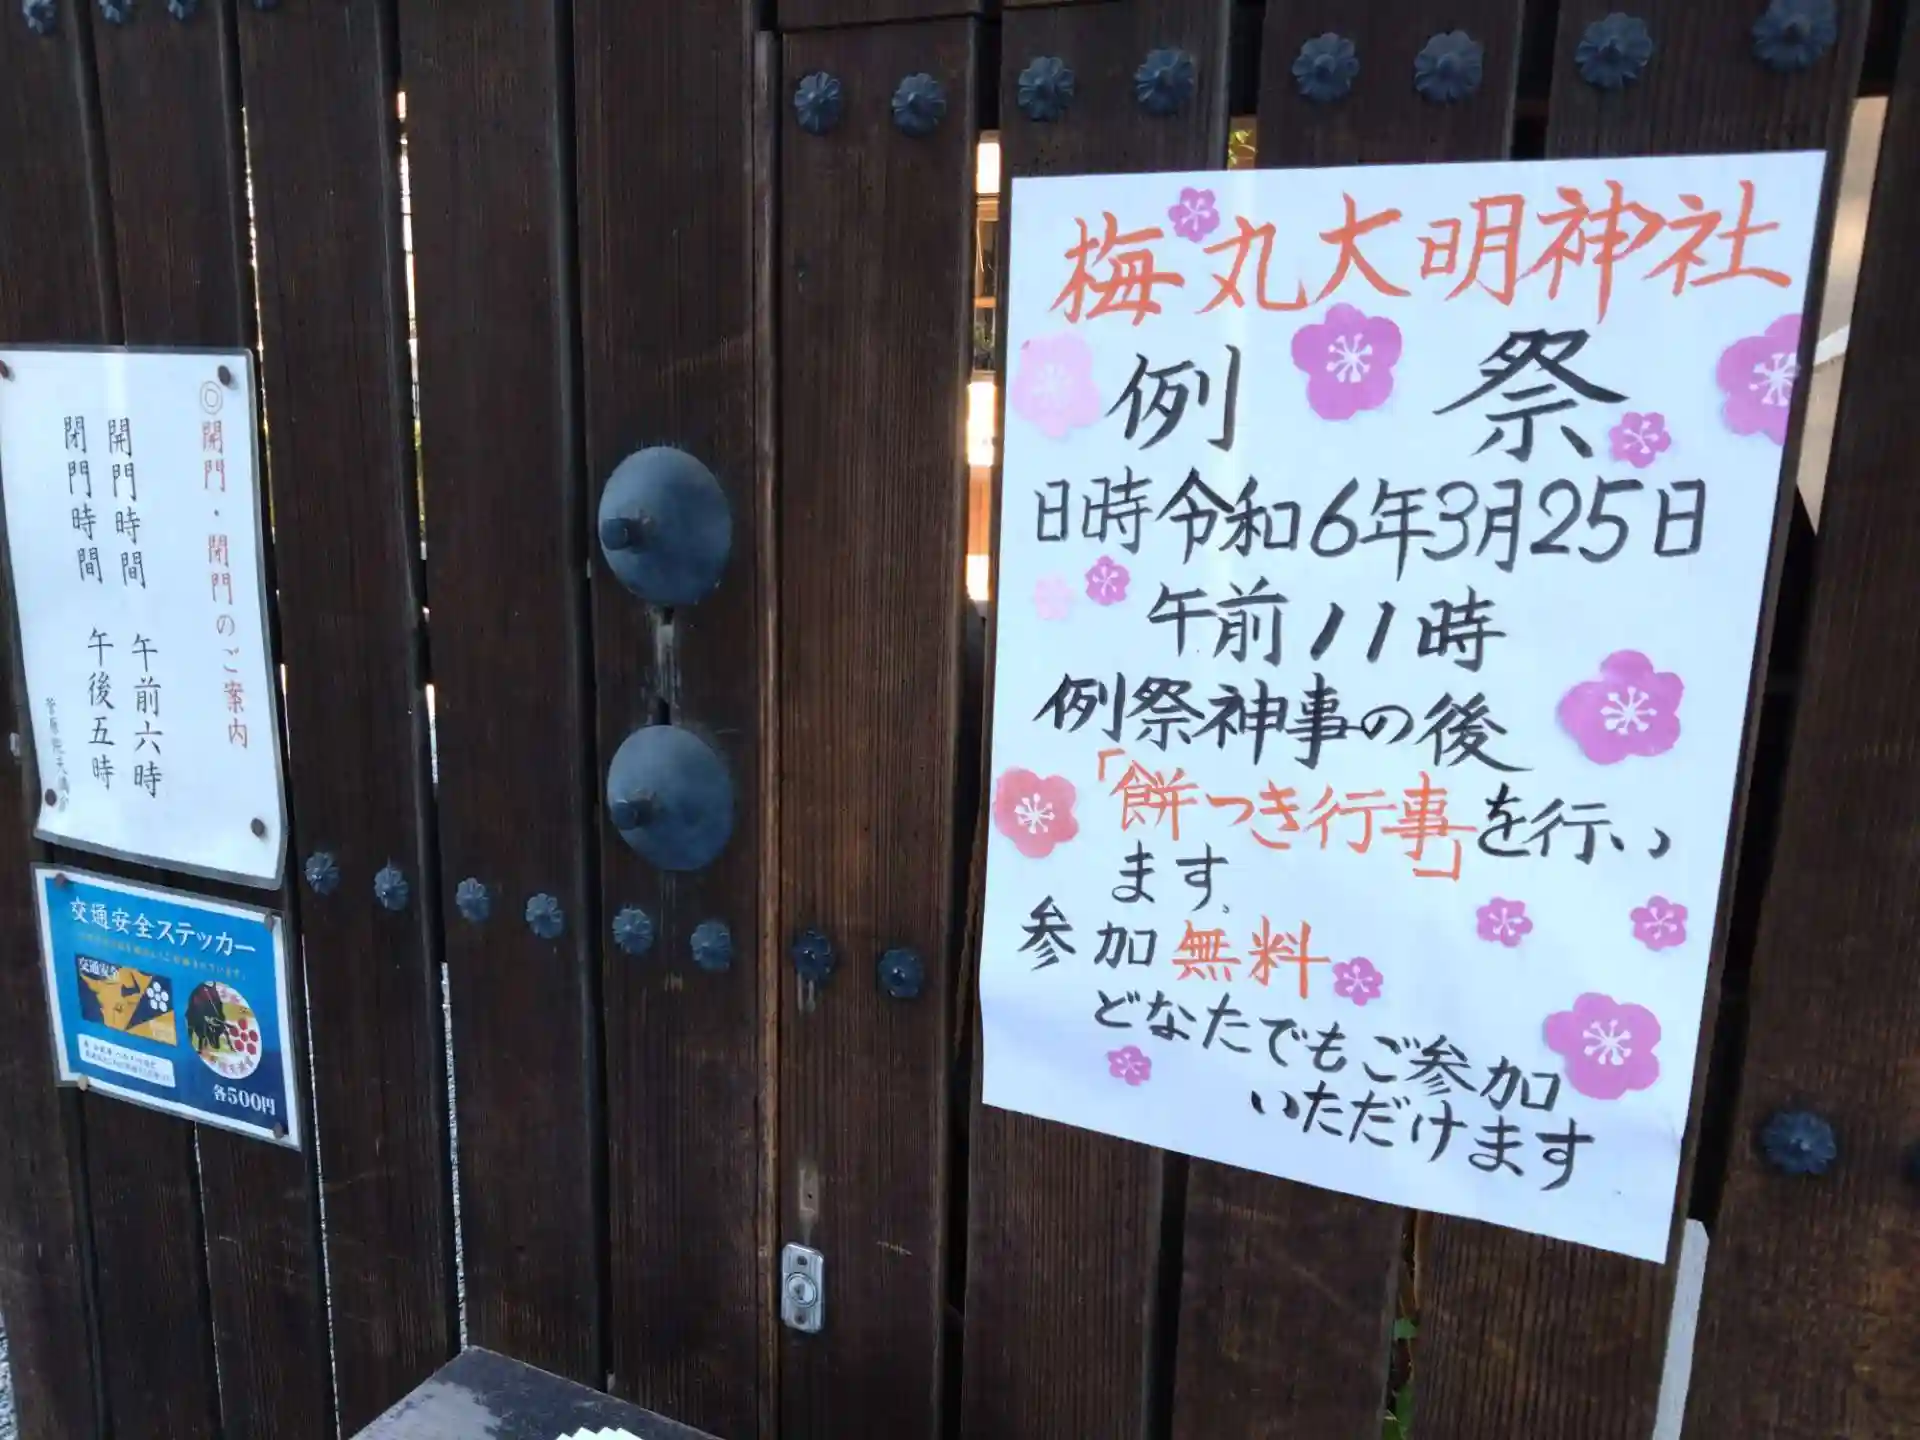 ◎開門・閉門のご案内
開門時間 午前六時
閉門時間 午後五時
菅原院天満宮
交通安全ステッカー
交通安全
各500円
梅丸大明神社
例祭
日時令和6年3月25日
午前11時
例祭神事の後
「餅つき行事」を行い
ます。
参加無料
どなたでもご参加
いただけます